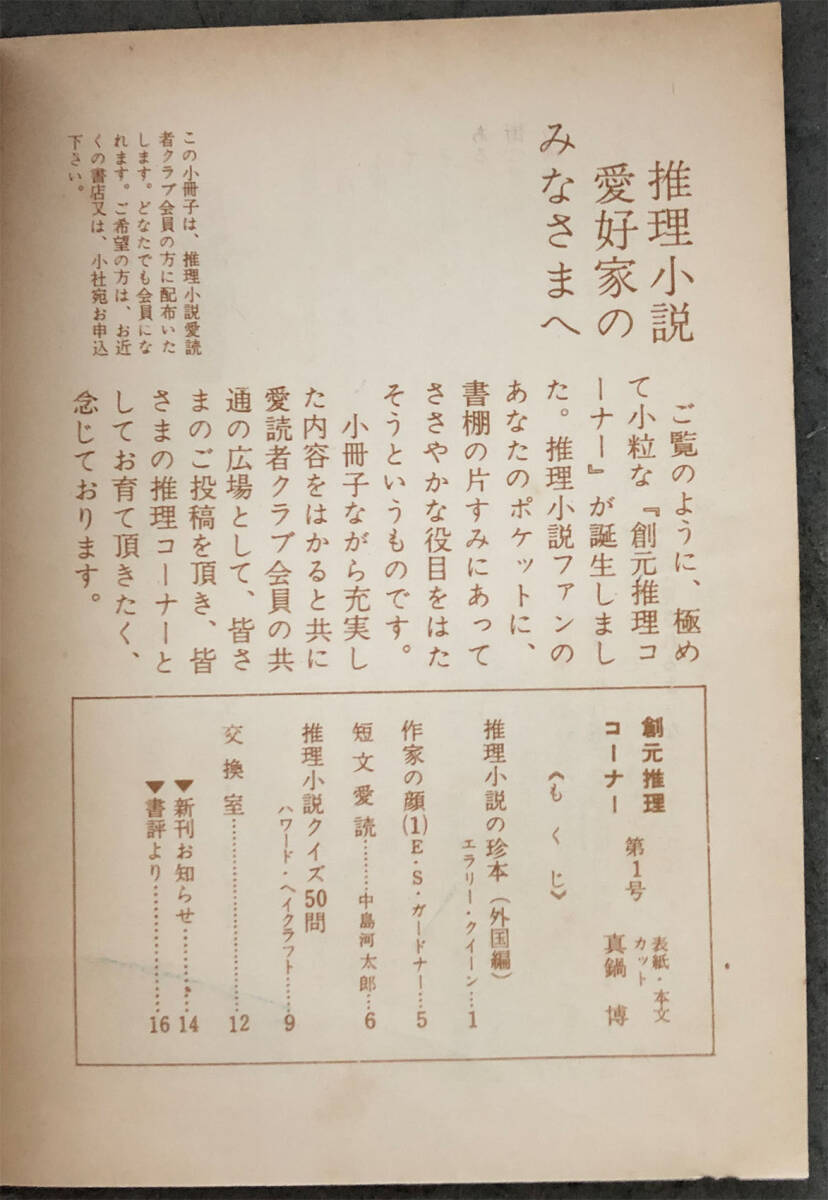 推理小説
愛好家の
みなさまへ
ご覧のように、極め
て小粒な『創元推理コ
ーナー』が誕生しまし
た。推理小説ファンの
あなたのポケットに、
書棚の片すみにあって
ささやかな役目をはた
そうというものです。
小冊子ながら充実し
た内容をはかると共に
愛読者クラブ会員の共
通の広場として、皆さ
まのご投稿を頂き、皆
さまの推理コーナーと
してお育て頂きたく、
念じております。
この小冊子は、推理小説愛読
者クラブ会員の方に配布いた
します。どなたでも会員にな
れます。ご希望の方は、お近
くの書店又は、小社宛お申込
下さい。
創元推理
コーナー 第1号
表紙・本文
カット
真鍋 博
《もくじ》
推理小説の珍本(外国編)
エラリー・クイーン…1
作家の顔(1)E・S・ガードナー…5
短文愛読………中島河太郎…6
推理小説クイズ50問
ハワード・ヘイクラフト……9
交換室……………………12
▼新刊お知らせ………14
▼書評より……………16